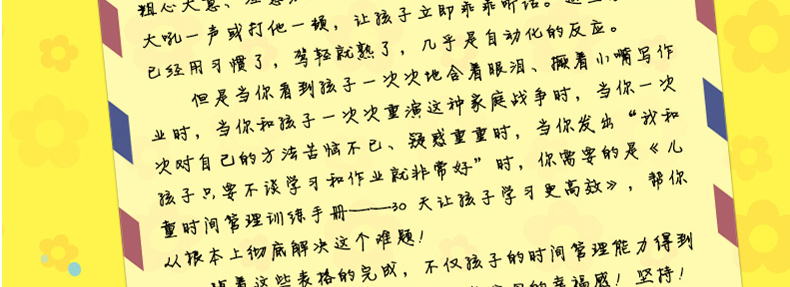 粗心大意、注意
大吼一声或打他一顿，让孩子立即乖乖听话。这
已经用习惯了，驾轻就熟了，几乎是自动化的反应。
但是当你看到孩子一次次地含着眼泪、撅着小嘴写作
业时，当你和孩子一次次重演这种家庭战争时，当你一次
次对自己的方法苦恼不已、疑惑重重时，当你发出“我和
孩子只要不谈学习和作业就非常好”时，你需要的是《儿
童时间管理训练手册——30 天让孩子学习更高效》，帮你
从根本上彻底解决这个难题！
着这些表格的完成，不仅孩子的时间管理能力得到
的幸福感！坚持！